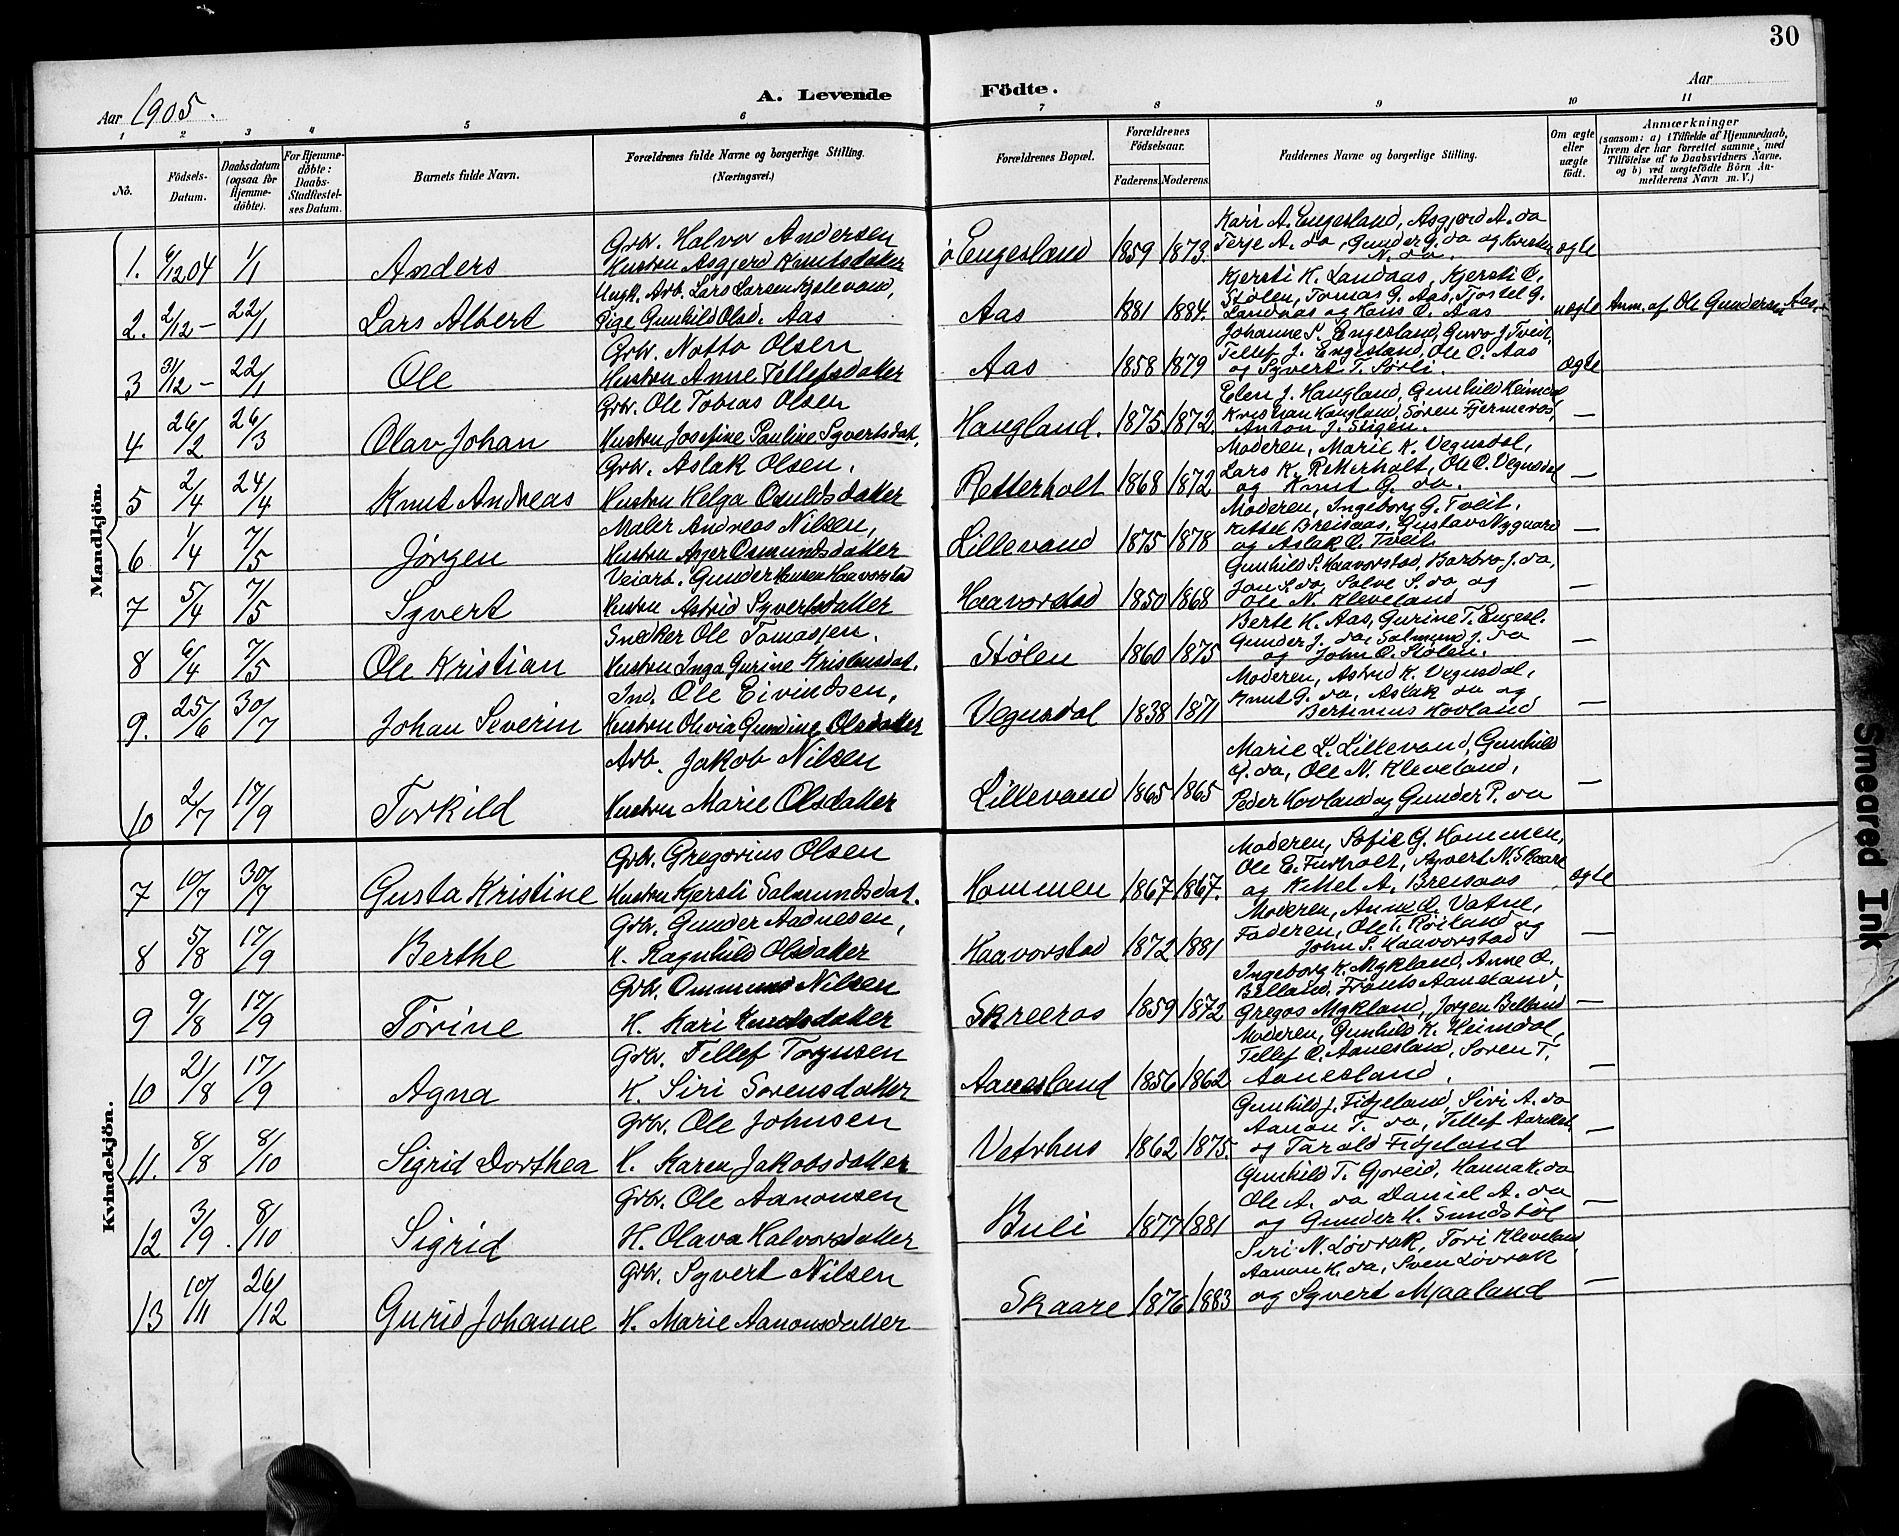 30
Aar 1905.
A. Levende Födte.
Aar
1 2 3 4 5 6 7 8 9 10 11
No.
Födsels-Datum.
Daabsdatum (ogsaa for Hjemme-döbte).
For Hjemme-döbte: Daabs-Stadfæstel-ses Datum.
Barnets fulde Navn.
Forældrenes fulde Navne og borgerlige Stilling. (Næringsvei.)
Forældrenes Bopæl.
Forældrenes Födselsaar.
Faderens. Moderens.
Faddernes Navne og borgerlige Stilling.
Om ægte eller uægte födt.
Anmærkninger
(saasom: a) i Tilfælde af Hjemmedaab,
hvem der har forrettet samme, med
Tilföielse af to Daabsvidners Navne,
og b) ved uægtefödte Börn An-
melderens Navn m. V.)
Mandkjön.
1. 6/12 04 1/1 Anders
Grbr. Halvor Andersen
Hustru Asgjerd Knutsdatter
Engesland 1859 1873.
Kari A. Engesland, Asgjerd A. do
Terje A. do, Gunder G. do og Kristen
N. do.
ægte
2. 2/12 – 22/1 Lars Albert
Ungk. Arb. Lars Larsen Kjolevand,
Pige Gunhild Olsd. Aas
Aas 1881 1884.
Kjersti K. Landaas, Kjersti O.
Stølen, Tomas G. Aas, Tjostel G.
Landaas og Hans O. Aas
uægte Anm. af Ole Gundersen Aas.
3 31/12 – 22/1 Ole
Grbr. Notto Olsen
Hustru Anne Tellefsdatter
Aas 1858 1879
Johanne S. Engesland, Guro J. Tveit,
Tellef J. Engesland, Ole O. Aas
og Syvert T. Sørli.
ægte
4 26/2 26/3 Olav Johan
Grbr. Ole Tobias Olsen
Hustru Josefine Pauline Syvertsdat.
Haugland. 1875 1872.
Elen J. Haugland, Gunhild Heimdal
Kristian Haugland, Søren Fjermeros,
Anton J. Stigen.
—
5 2/4 24/4 Knut Andreas
Grbr. Aslak Olsen.
Hustru Helga Osuldsdatter
Retterholt 1868 1872
Moderen, Marie K. Vegusdal,
Lars K. Retterholt, Ole O. Vegusdal
og Knut G. do.
—
6 1/4 7/5 Jørgen
Maler Andreas Nilsen,
Hustru Asger Osmundsdatter
Lillevand 1875 1878
Moderen, Ingeborg G. Tveit.
Kittel Breisaas, Gustav Nygaard
og Aslak O. Tveit.
—
7 5/4 7/5 Syvert
Veiarb. Gunder Hansen Haavorstad
Hustru Astrid Syvertsdatter
Haavorstad 1850 1868
Gunhild S. Haavorstad, Barbro J. do,
Jon S. do, Salve S. do og
Ole N. Kleveland
—
8 6/4 7/5 Ole Kristian
Snedker Ole Tomassen.
Hustru Inga Gurine Kristensdat.
Stølen 1860 1875
Berte H. Aas, Gurine T. Engesl.
Gunder J. do, Salmund J. do
og John O. Stølen.
—
9. 25/6 30/7 Johan Severin
Ind. Ole Eivindsen,
Hustru Olivia Gundine Olsdatter
Vegusdal 1838 1871
Moderen, Astrid K. Vegusdal,
Knut G. do, Aslak do og
Bertinius Hovland
—
10 2/7 17/9 Torkild
Arb. Jakob Nilsen
Hustru Marie Olsdatter
Lillevand 1865 1865
Marie L. Lillevand, Gunhild
J. do, Ole N. Kleveland,
Peder Hovland og Gunder P. do
—
Kvindekjön.
7 10/7 30/7 Gusta Kristine
Grbr. Gregorius Olsen
Hustru Kjersti Salmundsdat.
Hommen 1867 1867.
Moderen, Sofie G. Hommen,
Ole E. Furholt, Syvert N. Skaare
og Kittel A. Breisaas
ægte
8 5/8 17/9 Berthe
Grbr. Gunder Aadnesen,
H. Ragnhild Olsdatter
Haavorstad 1872 1881
Moderen, Anne O. Vatne,
Faderen, Ole T. Røiland og
John S. Haavorstad
—
9 9/8 17/9 Tørine
Grbr. Ommund Nilsen
H. Kari Knutsdatter
Skreeros 1859 1872
Ingeborg K. Mykland, Anne O.
Belland, Frants Aaneland,
Gregos Mykland, Jørgen Belland
—
10 21/8 17/9 Agna
Grbr. Tellef Torjusen
H. Siri Sørensdatter
Aanesland 1856 1862
Moderen, Gunhild K. Heimdal,
Tellef O. Aanesland, Søren T.
Aanesland.
—
11. 8/8 8/10 Sigrid Dorthea
Grbr. Ole Johnsen
H. Karen Jakobsdatter
Vetrhus 1862 1875.
Gunhild J. Fidjeland Siri A. do
Aanon T. do, Tellef
og Tarald Fidjeland
—
12 3/9 8/10 Sigrid
Grbr. Ole Aanonsen
H. Olava Halvorsdatter
Buli 1877 1881
Gunhild T. Gjoreid, Hanna K. do
Ole A. do Daniel A. do
og Gunder H. Sundstøl
—
13 10/11 26/12 Gurid Johanne
Grbr. Syvert Nilsen
H. Marie Aanonsdatter
Skaare 1876 1883
Siri N. Løvrak, Tori Kleveland,
Aanon H. do, Sven Løvrak
og Syvert Mjaaland
—
Smeared Ink